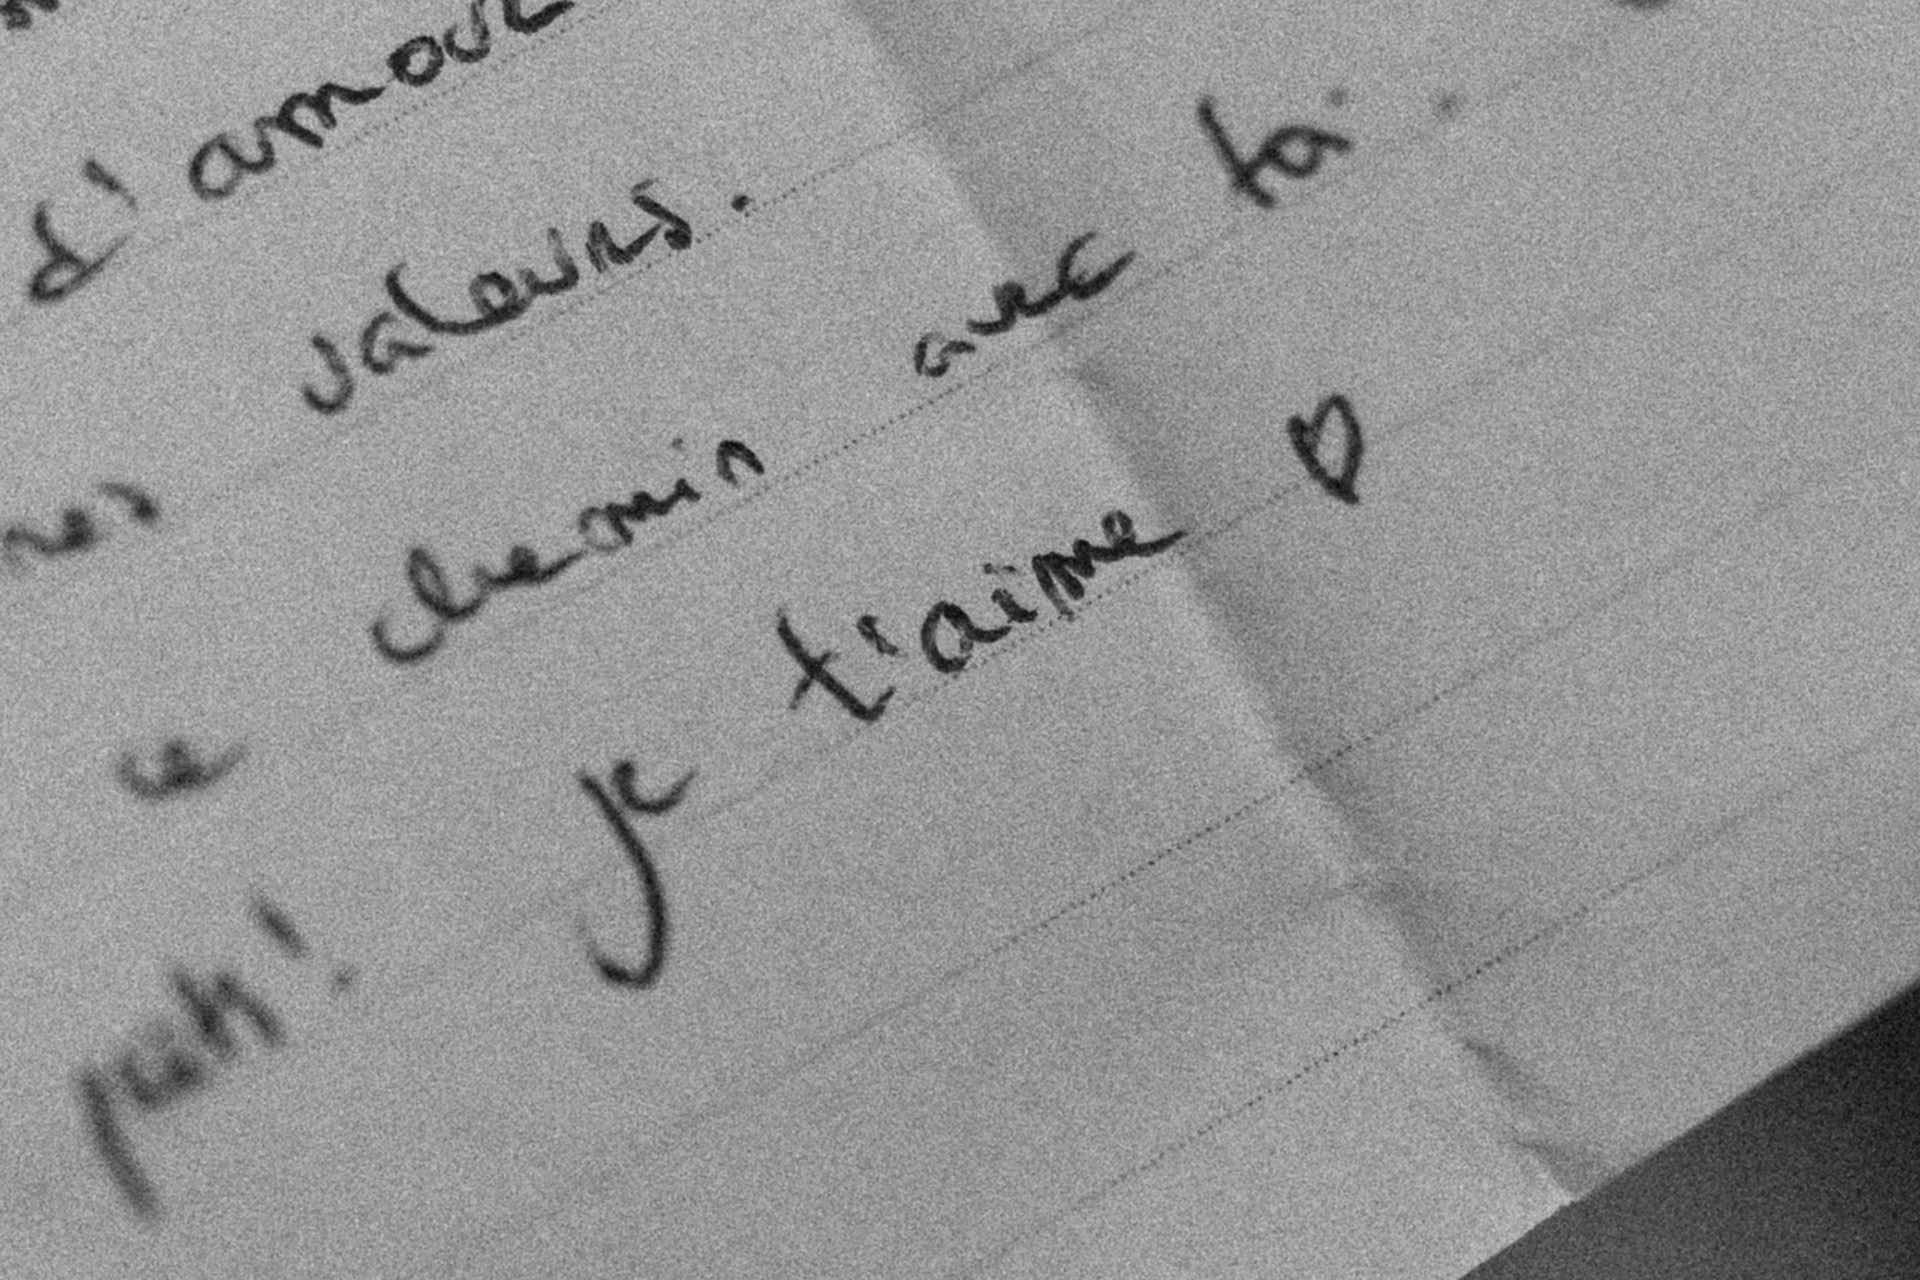 d'amour
valeurs.
ce chemin avec toi.
je t'aime ♡